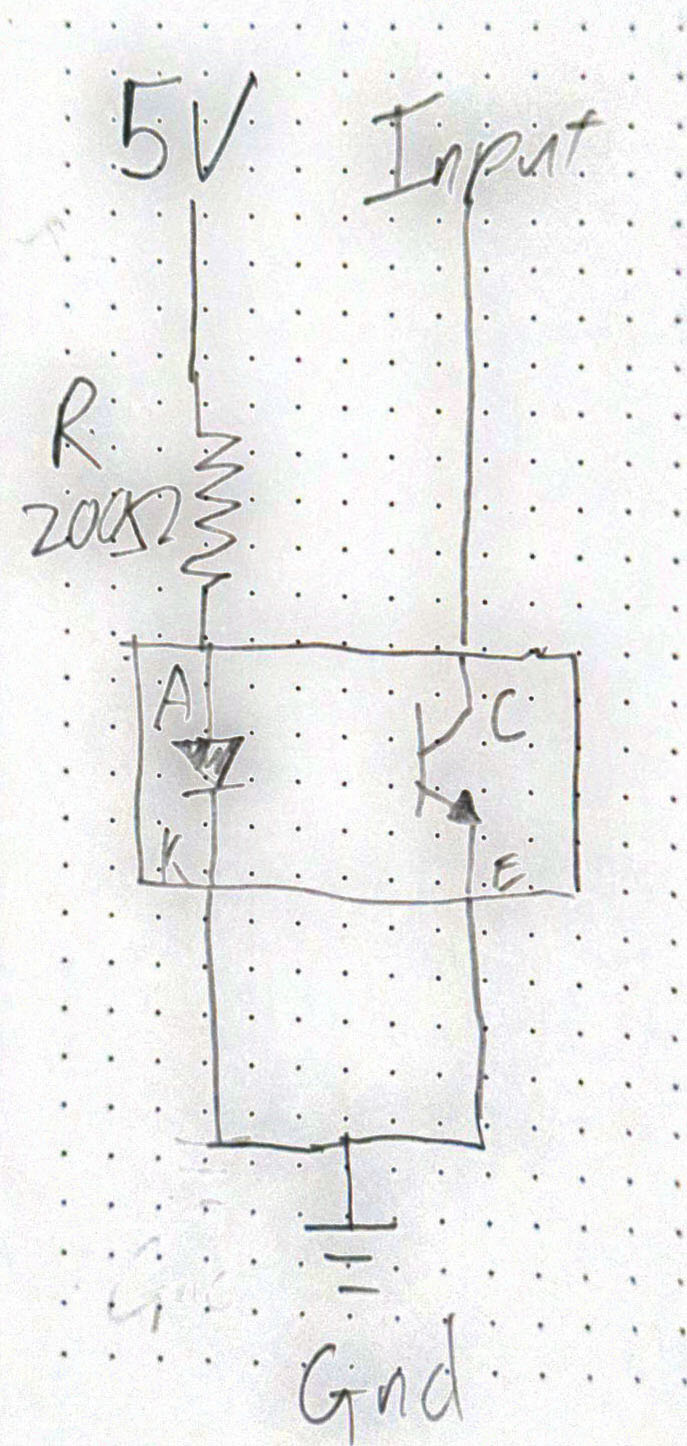 5V
Input
R
200Ω
A
C
K
E
Gnd